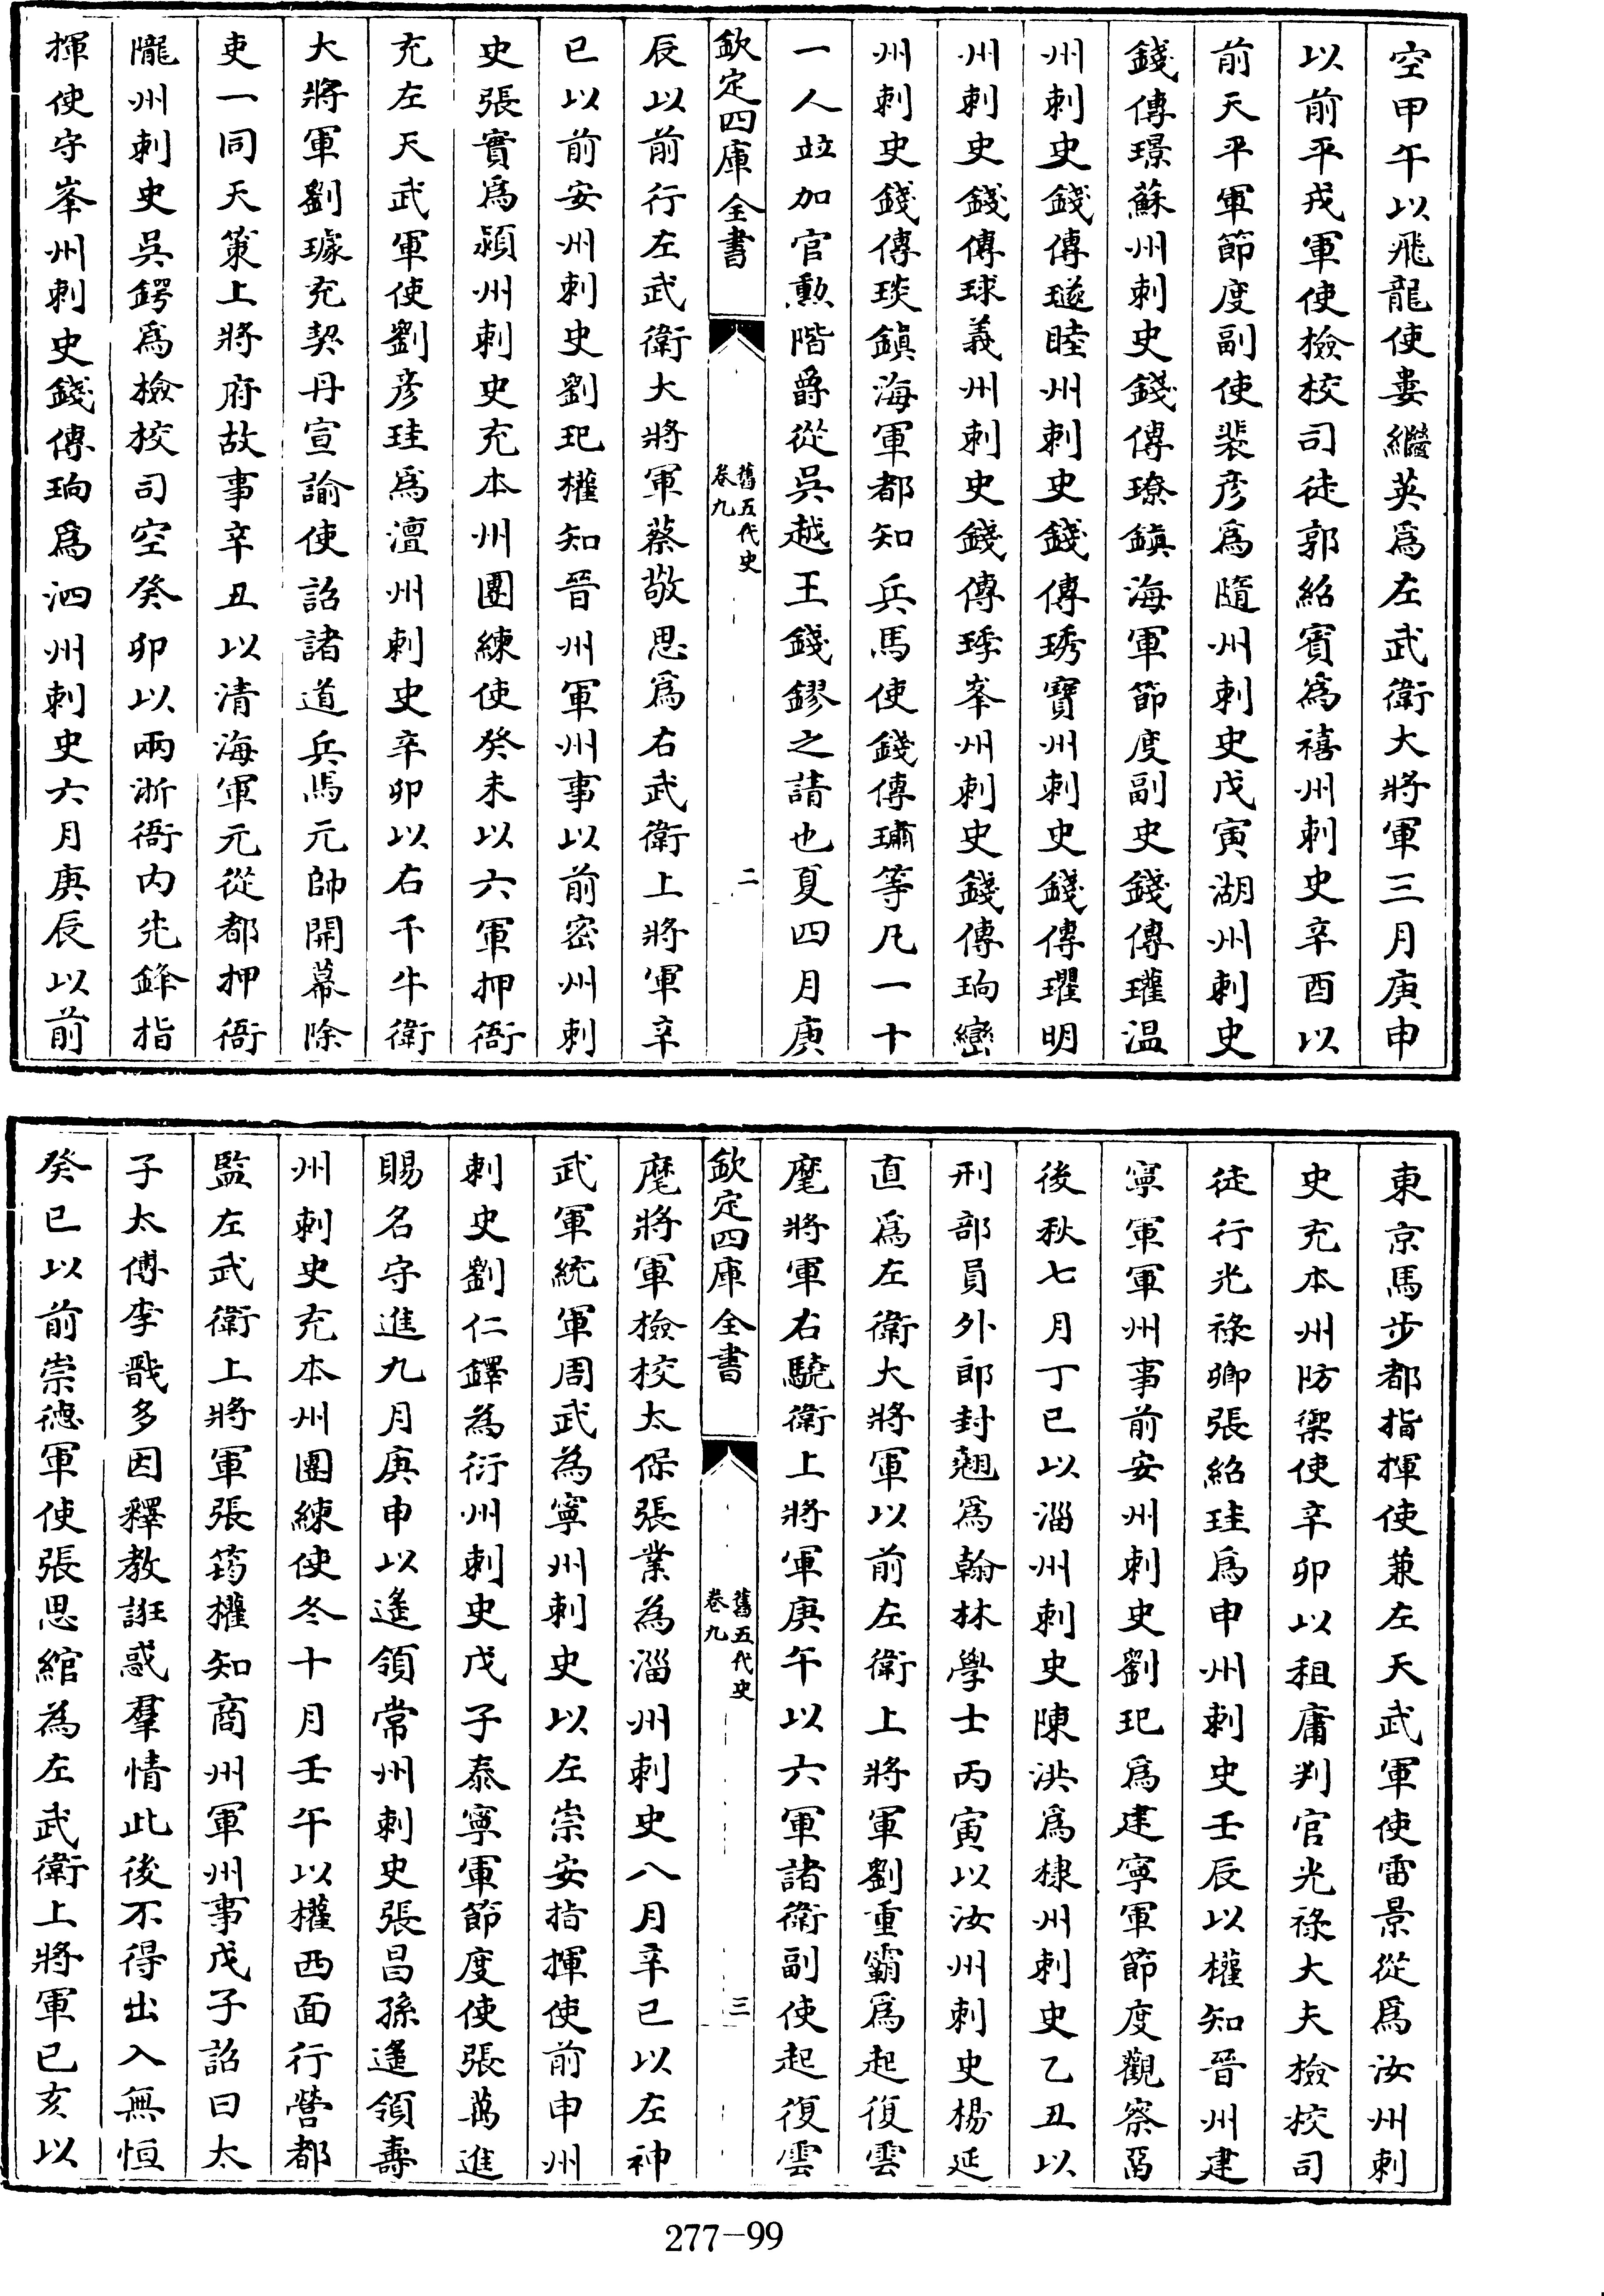 空甲午以飛龍使婁繼英爲左武衛大將軍三月庚申
以前平戎軍使檢校司徒郭紹賓爲禧州刺史辛酉以
前天平軍節度副使裴彦爲隨州刺史戊寅湖州刺史
錢傳璟蘇州刺史錢傳璙鎮海軍節度副史錢傳瓘温
州刺史錢傳璲睦州刺史錢傳琇寶州刺史錢傳瓘明
州刺史錢傳球義州刺史錢傳㻑峯州刺史錢傳珦巒
州刺史錢傳琰鎮海軍都知兵馬使錢傳璛等凡一十
一人竝加官勲階爵從吳越王錢鏐之請也夏四月庚
欽定四庫全書
舊五代史
卷九
二
辰以前行左武衛大將軍蔡敬思爲右武衛上將軍辛
已以前安州刺史劉玘權知晉州軍州事以前密州刺
史張實爲潁州刺史充本州團練使癸未以六軍押衙
充左天武軍使劉彦珪爲澶州刺史辛卯以右千牛衛
大將軍劉璩充契丹宣諭使詔諸道兵馬元帥開幕除
吏一同天策上將府故事辛丑以清海軍元從都押衙
隴州刺史吳鍔爲檢校司空癸卯以兩浙衙内先鋒指
揮使守峯州刺史錢傳珦爲泗州刺史六月庚辰以前
東京馬步都指揮使兼左天武軍使雷景從爲汝州刺
史充本州防禦使辛卯以租庸判官光祿大夫檢校司
徒行光祿卿張紹珪爲申州刺史壬辰以權知晉州建
寧軍軍州事前安州刺史劉玘爲建寧軍節度觀察畱
後秋七月丁已以淄州刺史陳洪爲棣州刺史乙丑以
刑部員外郎封翹爲翰林學士丙寅以汝州刺史楊延
直爲左衛大將軍以前左衛上將軍劉重霸爲起復雲
麾將軍右驍衛上將軍庚午以六軍諸衛副使起復雲
欽定四庫全書
舊五代史
卷九
三
麾將軍檢校太保張業為淄州刺史八月辛已以左神
武軍統軍周武為寧州刺史以左崇安指揮使前申州
刺史劉仁鐸為衍州刺史戊子泰寧軍節度使張萬進
賜名守進九月庚申以遙領常州刺史張昌孫遙領壽
州刺史充本州團練使冬十月壬午以權西面行營都
監左武衛上將軍張筠權知商州軍州事戊子詔曰太
子太傅李戩多因釋教誑惑羣情此後不得出入無恒
癸已以前崇德軍使張思綰為左武衛上將軍已亥以
277-99